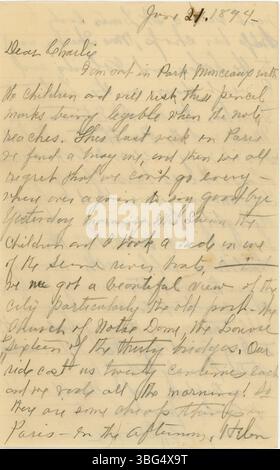 June 21. 1894-
Dear Charlie
I am out in Park Monceaux with
the children and will risk this pencil
marks being legible when the note
reaches. This last week in Paris
we find a busy one, and then we all
regret that we can't go every-
where over again to say goodbye
Yesterday morning the
children and I took a ride in one
of the Seine river boats,
we got a beautiful view of the
city particularly the old part- the
Church of Notre Dame, the Louvre
sixteen of the thirty bridges. Our
ride cost us twenty centimes each
and we rode all the morning! So
there are some cheap things in
Paris- In the afternoon, Helen
alamy
Image ID: 3BG4X9T
www.alamy.com